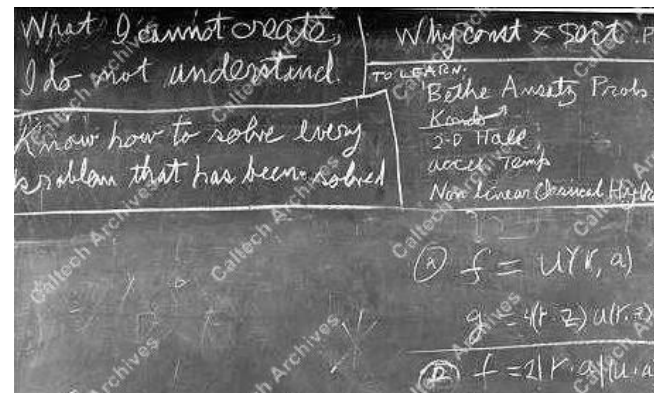 What I cannot create,
I do not understand.
Know how to solve every
problem that has been solved
Why const × sort .P
TO LEARN:
Bethe Ansatz Probs.
Kondo
2-D Hall
accel. Temp
Non Linear Classical Hydro
f = U(r, a)
g = 4(r·z) u(r.z)
f = 2|r·a|(u·a
Caltech Archives